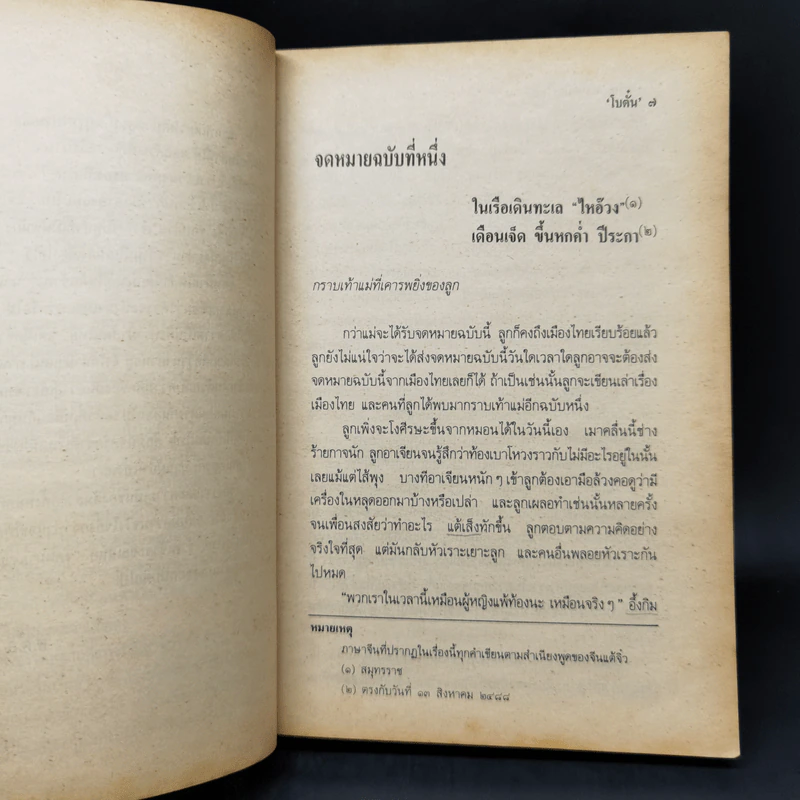 'โบตั๋น' ๗
จดหมายฉบับที่หนึ่ง
ในเรือเดินทะเล "ไหอ๊วง"(๑)
เดือนเจ็ด ขึ้นหกค่ำ ปีระกา(๒)
กราบเท้าแม่ที่เคารพยิ่งของลูก
กว่าแม่จะได้รับจดหมายฉบับนี้ ลูกก็คงถึงเมืองไทยเรียบร้อยแล้ว
ลูกยังไม่แน่ใจว่าจะได้ส่งจดหมายฉบับนี้วันใดเวลาใดลูกอาจจะต้องส่ง
จดหมายฉบับนี้จากเมืองไทยเลยก็ได้ ถ้าเป็นเช่นนั้นลูกจะเขียนเล่าเรื่อง
เมืองไทย และคนที่ลูกได้พบมากราบเท้าแม่อีกฉบับหนึ่ง
ลูกเพิ่งจะโงศีรษะขึ้นจากหมอนได้ในวันนี้เอง เมาคลื่นนี้ช่าง
ร้ายกาจนัก ลูกอาเจียนจนรู้สึกว่าท้องเบาโหวงราวกับไม่มีอะไรอยู่ในนั้น
เลยแม้แต่ไส้พุง บางทีอาเจียนหนักๆ เข้าลูกต้องเอามือล้วงคอดูว่ามี
เครื่องในหลุดออกมาบ้างหรือเปล่า และลูกเผลอทำเช่นนั้นหลายครั้ง
จนเพื่อนสงสัยว่าทำอะไร แต้เส็งทักขึ้น ลูกตอบตามความคิดอย่าง
จริงใจที่สุด แต่มันกลับหัวเราะเยาะลูก และคนอื่นพลอยหัวเราะกัน
ไปหมด
"พวกเราในเวลานี้เหมือนผู้หญิงแพ้ท้องนะ เหมือนจริงๆ" อึ้งกิม
หมายเหตุ
ภาษาจีนที่ปรากฏในเรื่องนี้ทุกคำเขียนตามสำเนียงพูดของจีนแต้จิ๋ว
(๑) สมุทรราช
(๒) ตรงกับวันที่ ๑๓ สิงหาคม ๒๔๘๘